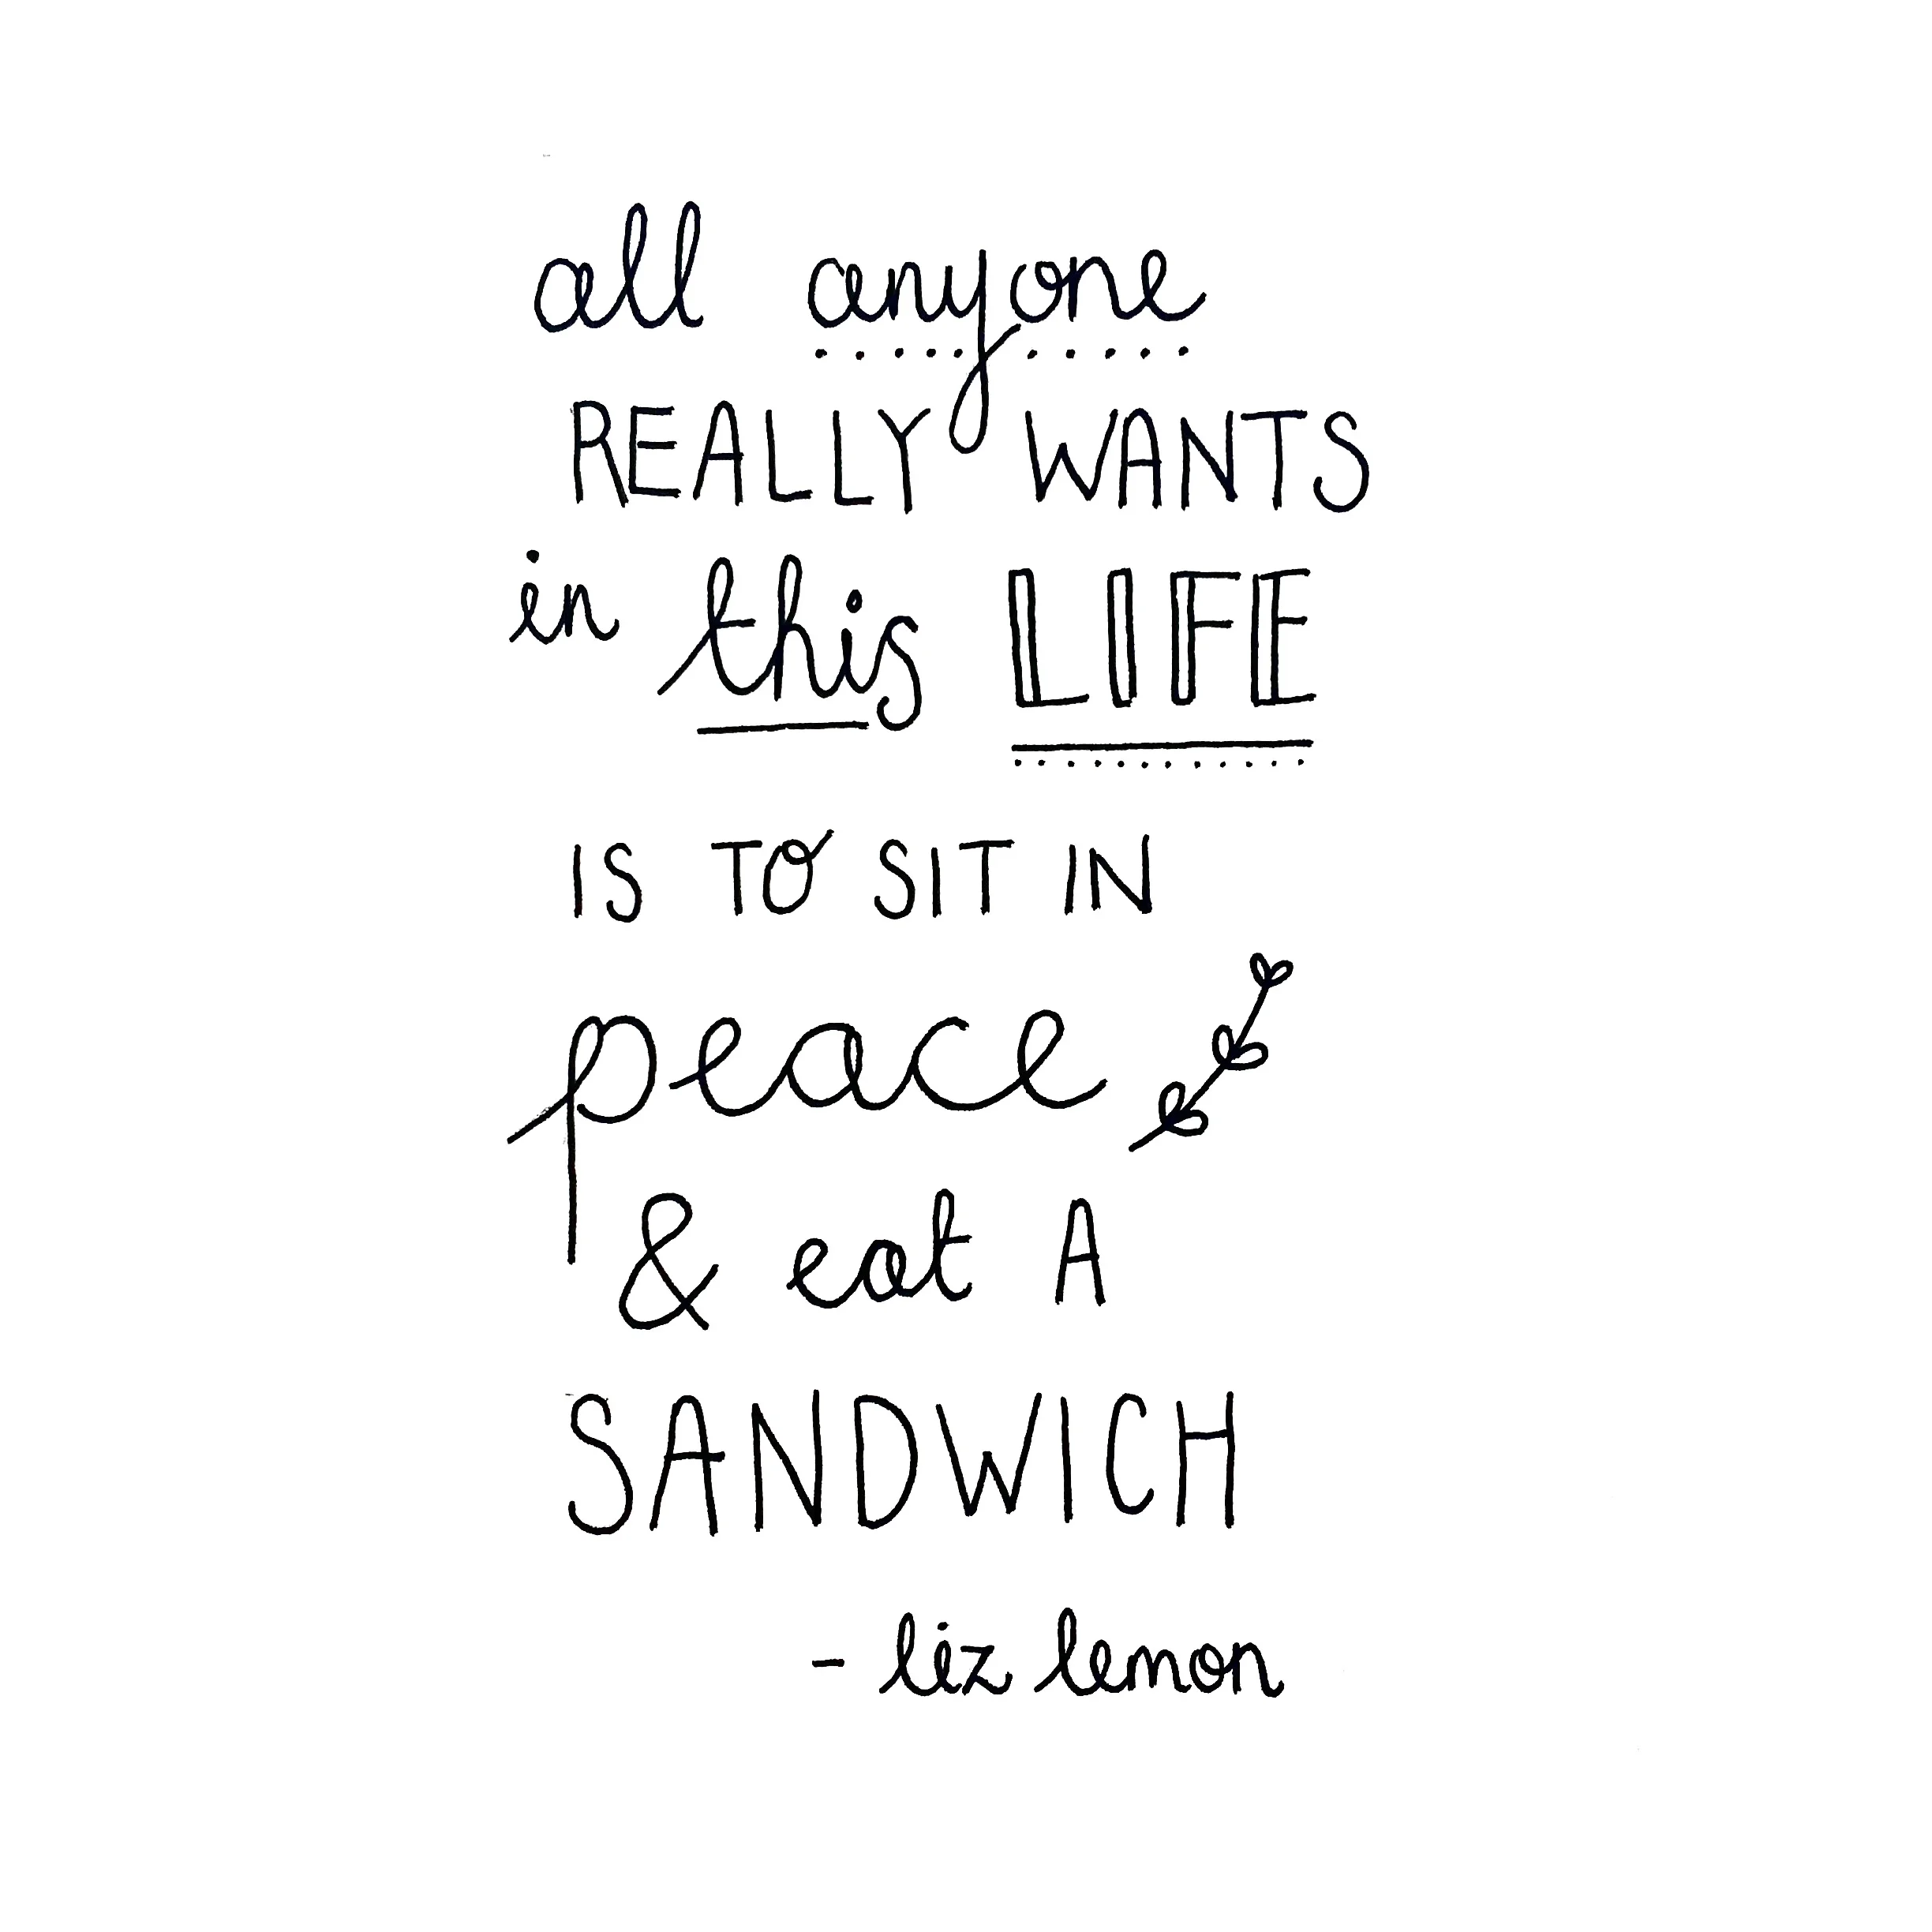 all anyone
REALLY WANTS
in this LIFE
IS TO SIT IN
peace
& eat A
SANDWICH
- liz lemon